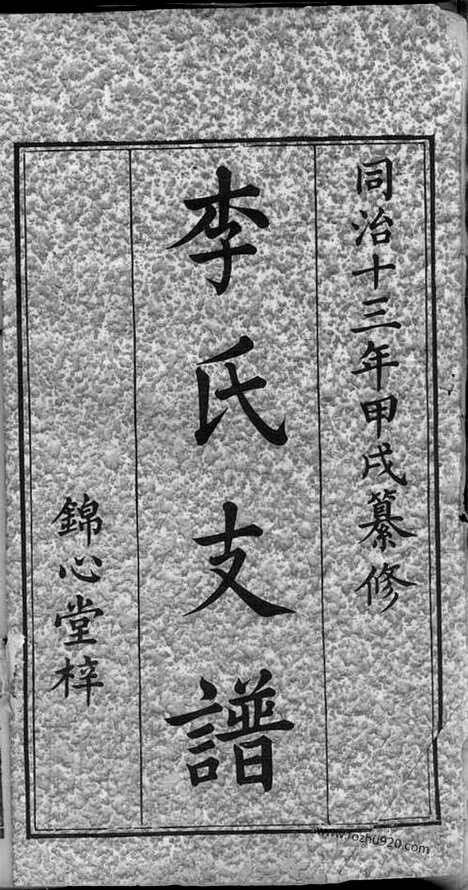 同治十三年甲戌纂修
李氏支譜
錦心堂梓
www.fozhu920.com